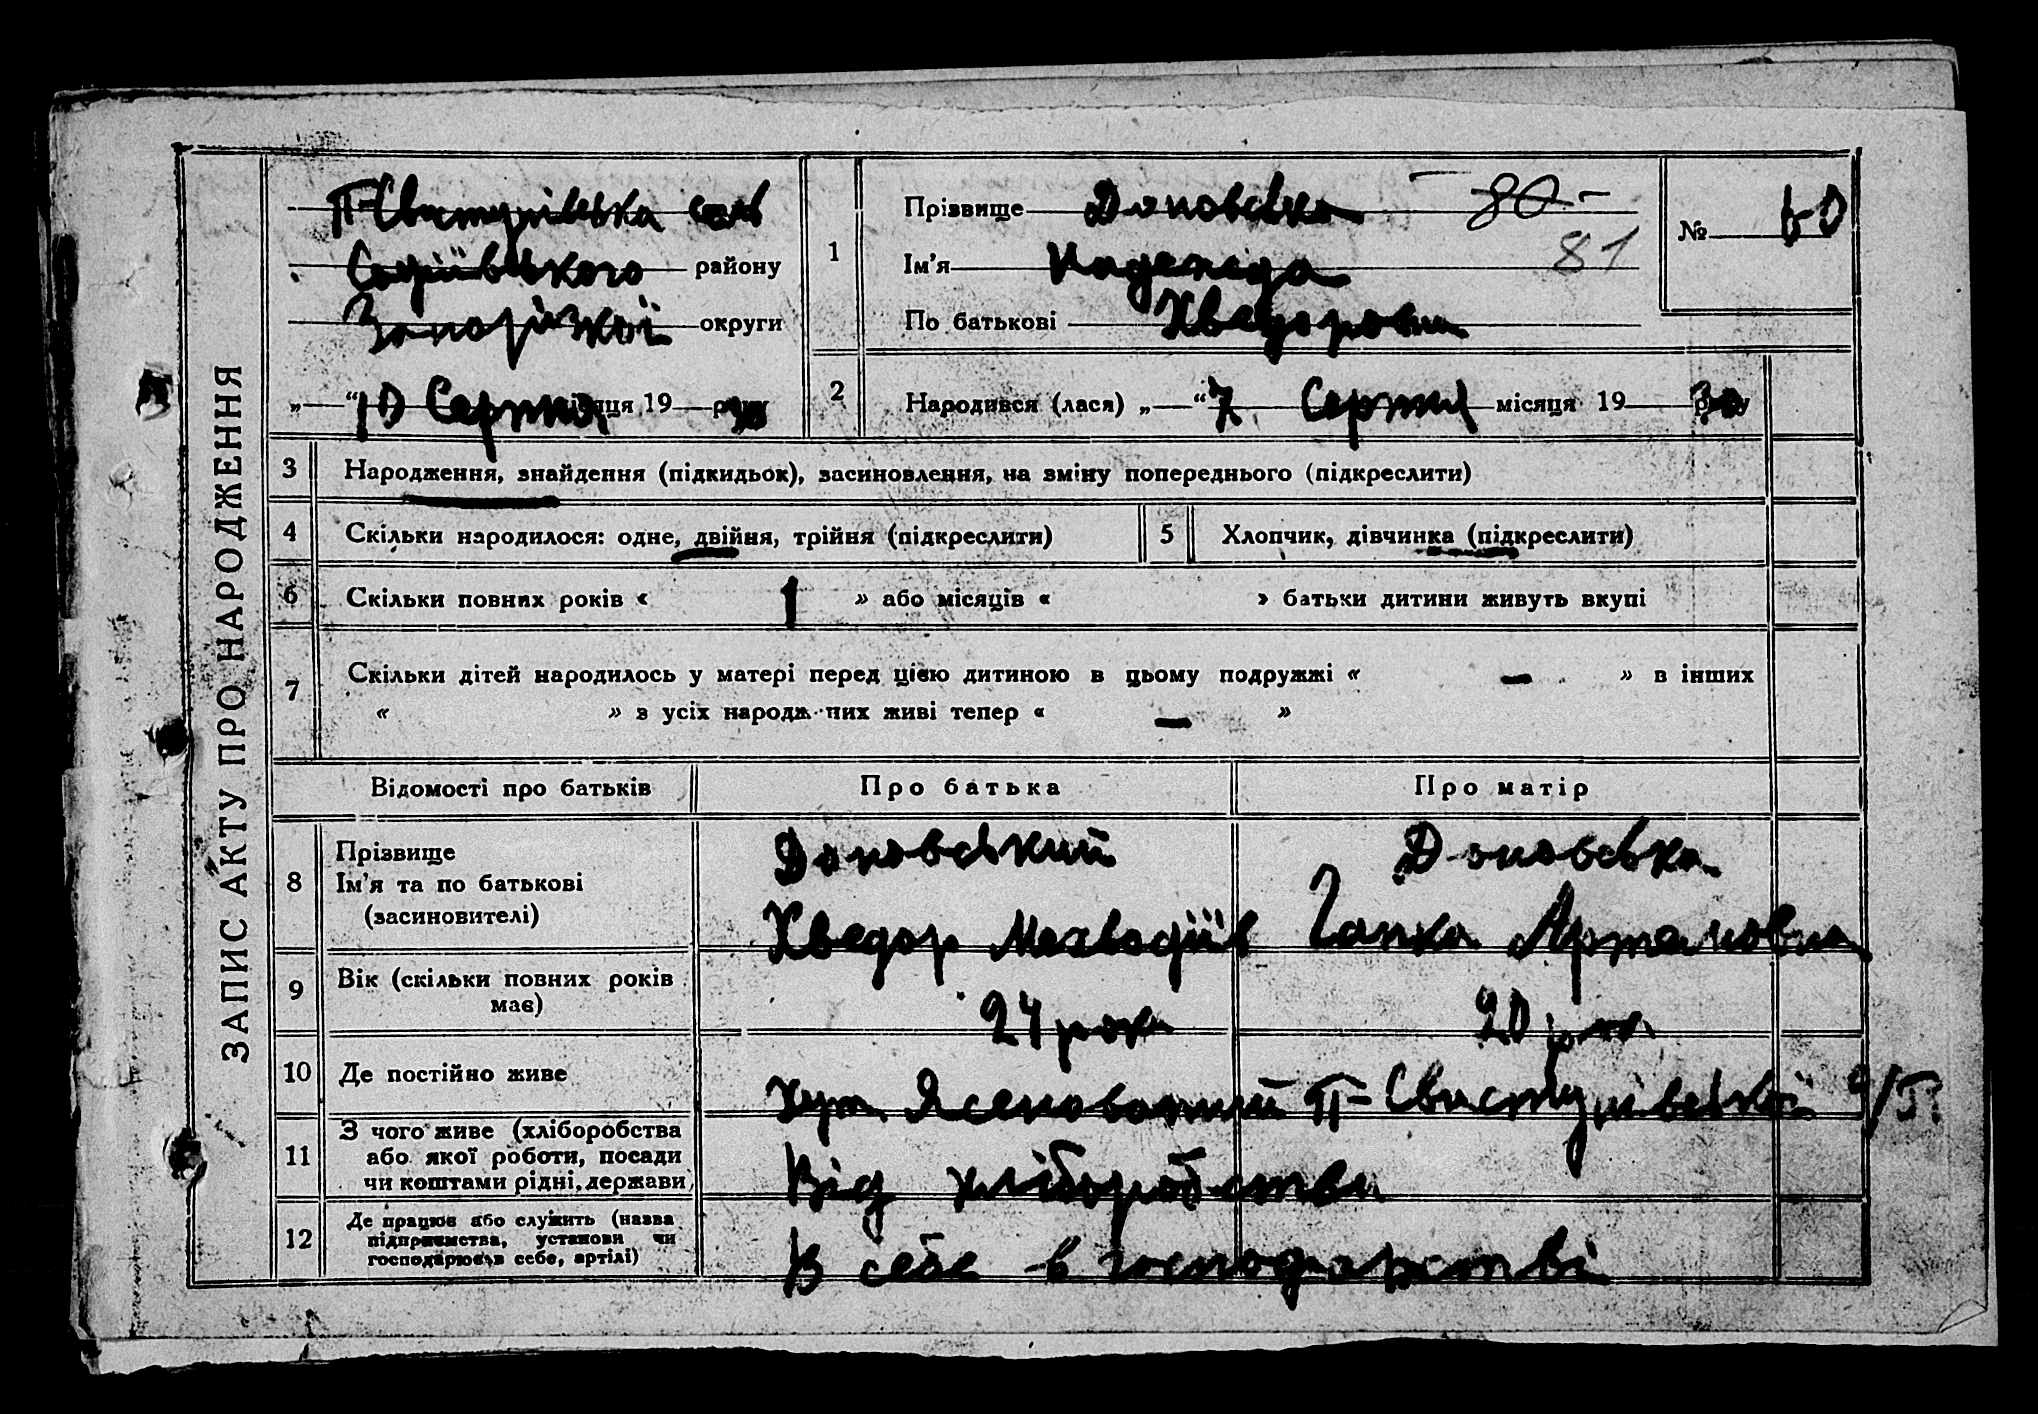 ЗАПИС АКТУ ПРО НАРОДЖЕННЯ
П-Свистунівська
Софіївського району
Запорізької округи
„ “ 10 Серпня місяця 19 30 року
1
Прізвище Доновська 80
81
Ім'я Надежда
По батькові Хведоровна
№ 60
2
Народився (лася) „ “ 7 Серпня місяця 19 30 року
3 Народження, знайдення (підкидьок), засиновлення, на зміну попереднього (підкреслити)
4 Скільки народилося: одне, двійня, трійня (підкреслити) 5 Хлопчик, дівчинка (підкреслити)
6 Скільки повних років « 1 » або місяців « » батьки дитини живуть вкупі
7 Скільки дітей народилось у матері перед цією дитиною в цьому подружжі « – » в інших
« » з усіх народж них живі тепер « – »
Відомості про батьків Про батька Про матір
8 Прізвище
Ім'я та по батькові
(засиновителі)
Доновський Доновська
Хведор Гапка Артамовна
9 Вік (скільки повних років
має)
24 роки 20 рок
10 Де постійно живе
Хут Ясеноватий П-Свистунівської с/р
11 З чого живе (хліборобства
або якої роботи, посади
чи коштами рідні, держави
Від хліборобства
12 Де працює або служить (назва
підприємства, установи чи
господарює в себе, артілі)
В себе в господарстві